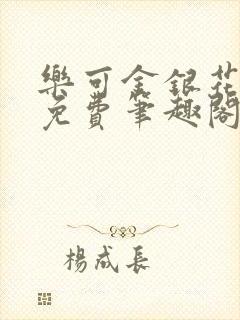 樂可金銀花
免費筆趣閣
楊成長